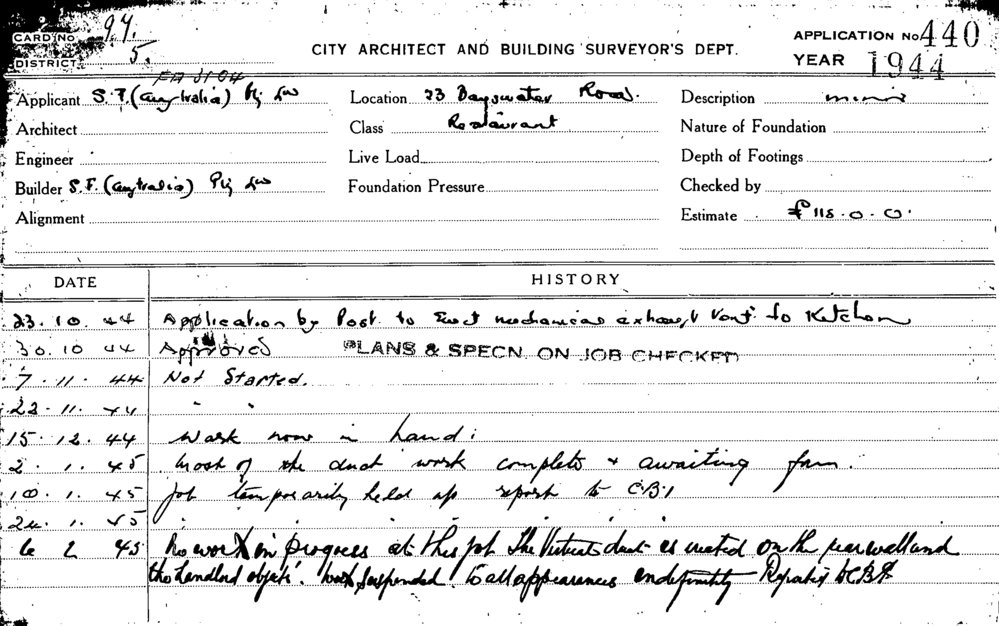 CARD No 94.
DISTRICT 5.
CITY ARCHITECT AND BUILDING SURVEYOR'S DEPT.
APPLICATION No 440
YEAR 1944
Applicant S.F. (Australia) Pty Ltd
Location 23 Bayswater Road.
Description minor
Architect
Class Restaurant
Nature of Foundation
Engineer
Live Load
Depth of Footings
Builder S.F. (Australia) Pty Ltd
Foundation Pressure
Checked by
Alignment
Estimate £118.0.0.
DATE HISTORY
23.10.44 Application by Post to Erect mechanical exhaust Vent to Kitchen
30.10.44 Approved PLANS & SPECN. ON JOB CHECKED
7.11.44 Not Started.
22.11.44 " "
15.12.44 Work now in hand:
2.1.45 Most of the duct work complete & awaiting fan.
10.1.45 Job temporarily held up report to C.B.I
24.1.45 " " "
6 2 45 No work in progress at this job The Vertical duct is erected on the rear wall and
the Landlord objects. Work suspended to all appearances indefinitely Reported to CBI